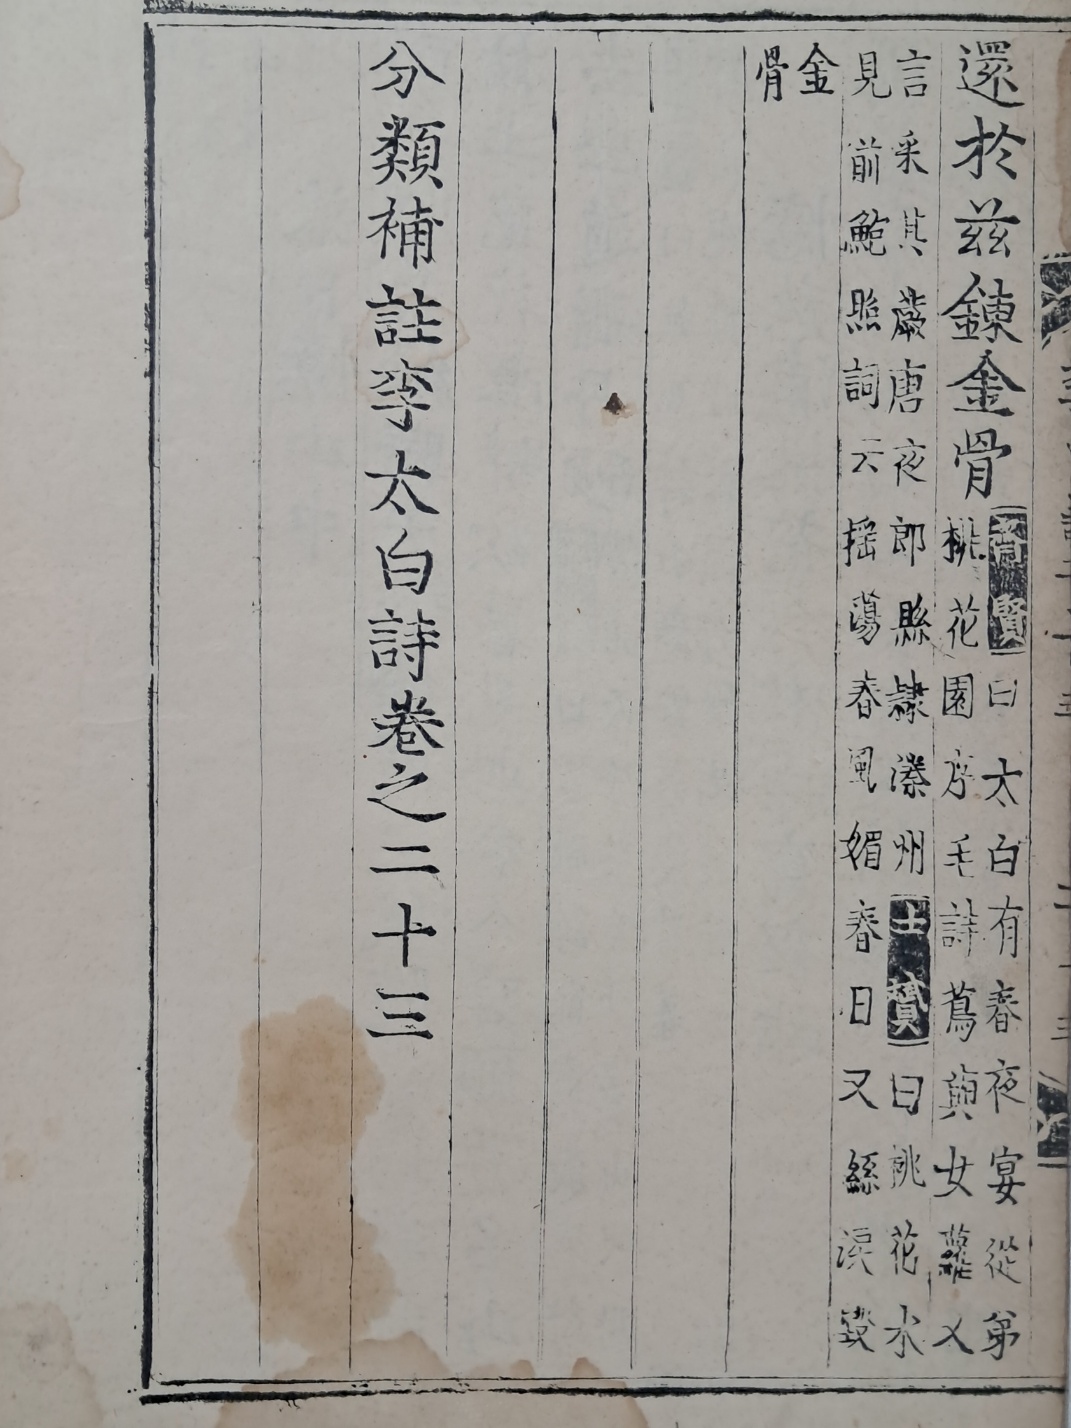 還於茲鍊金骨
齊賢曰太白有春夜宴從弟
桃花園序毛詩蔦與女蘿又
言采其蕨唐夜郎縣隸溱州士贇曰桃花水
見前鮑照詞云揺蕩春風媚春日又絲淚毀
金
骨
分類補註李太白詩卷之二十三